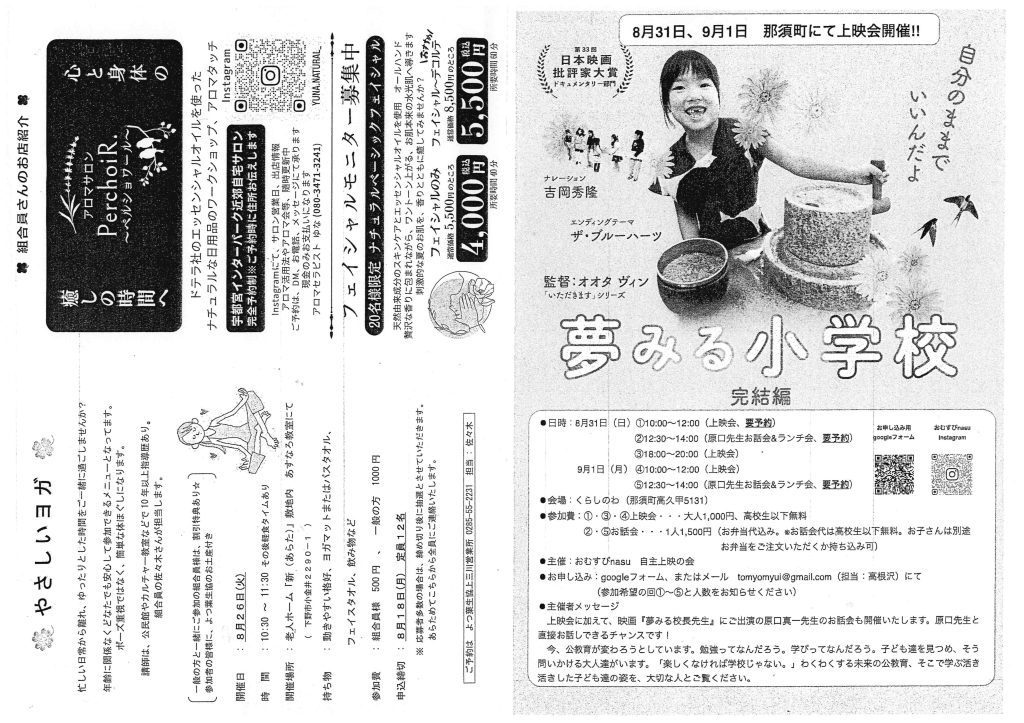 ❀ やさしいヨガ ❀
忙しい日常から離れ、ゆったりとした時間をご一緒に過ごしませんか?
年齢に関係なくどなたでも安心して参加できるメニューとなってます。
ポーズ重視ではなく、簡単な体ほぐしになります。
講師は、公民館やカルチャー教室などで10年以上指導歴あり。
組合員の佐々木さんが担当します。
一般の方と一緒にご参加の組合員様は、割引特典あり☆
参加者の皆様に、よつ葉生協のお土産付き
開催日 : 8月26日(火)
時 間 : 10:30 ~ 11:30 その後軽食タイムあり
開催場所 : 老人ホーム「新(あらた)」敷地内 あすなろ教室にて
( 下野市小金井2290-1 )
持ち物 : 動きやすい格好、ヨガマットまたはバスタオル、
フェイスタオル、飲み物など
参加費 : 組合員様 500円 、 一般の方 1000円
申込締切 : 8月18日(月) 定員12名
※ 応募者多数の場合は、締め切り後に抽選とさせていただきます。
あらためてこちらから全員にご連絡いたします。
ご予約は よつ葉生協上三川営業所 0285-55-2231 担当:佐々木
✽ 組合員さんのお店紹介 ✽
心と身体の
アロマサロン
PerchoiR.
~ペルショワール~
癒しの時間へ
ドテラ社のエッセンシャルオイルを使った
ナチュラルな日用品のワークショップ、アロマタッチ
宇都宮インターパーク近郊自宅サロン
完全予約制※ご予約時に住所お伝えします
Instagram
YUNA.NATURAL_
Instagramにて、サロン営業日、出店情報
アロマ活用法やアロマ会等、随時更新中
ご予約は、DM、お電話、メッセージにて承ります
現金のみお支払いになります
アロマセラピスト ゆな (080-3471-3241)
フェイシャルモニター募集中
20名様限定 ナチュラルベーシックフェイシャル
天然由来成分のスキンケアとエッセンシャルオイルを使用 オールハンド
贅沢な香りに包まれながら、ワントーン上がる、お肌本来の水光肌へ導きます
刺激的な夏のお肌を、香りとともに癒してみませんか?
フェイシャルのみ
通常価格 5,500円のところ
4,000円 税込
所要時間40分
おすすめ!
フェイシャル~デコルテ
通常価格 8,500円のところ
5,500円 税込
所要時間60分
8月31日、9月1日 那須町にて上映会開催!!
第33回
日本映画
批評家大賞
ドキュメンタリー部門
自分のままで
いいんだよ
ナレーション
吉岡秀隆
エンディングテーマ
ザ・ブルーハーツ
監督:オオタ ヴィン
「いただきます」シリーズ
夢みる小学校
完結編
●日時:8月31日(日)①10:00~12:00(上映会、要予約)
②12:30~14:00(原口先生お話会&ランチ会、要予約)
③18:00~20:00(上映会)
9月1日(月)④10:00~12:00(上映会)
⑤12:30~14:00(原口先生お話会&ランチ会、要予約)
お申し込み用
googleフォーム
おむすびnasu
Instagram
●会場:くらしのわ(那須町高久甲5131)
●参加費:①・③・④上映会・・・大人1,000円、高校生以下無料
②・⑤お話会・・・1人1,500円(お弁当代込み。※お話会代は高校生以下無料。お子さんは別途
お弁当をご注文いただくか持ち込み可)
●主催:おむすびnasu 自主上映の会
●お申し込み:googleフォーム、またはメール tomyomyui@gmail.com(担当:高根沢)にて
(参加希望の回①~⑤と人数をお知らせください)
●主催者メッセージ
上映会に加えて、映画『夢みる校長先生』にご出演の原口真一先生のお話会も開催いたします。原口先生と
直接お話しできるチャンスです!
今、公教育が変わろうとしています。勉強ってなんだろう。学びってなんだろう。子ども達を見つめ、そう
問いかける大人達がいます。「楽しくなければ学校じゃない。」わくわくする未来の公教育、そこで学ぶ活き
活きした子ども達の姿を、大切な人とご覧ください。